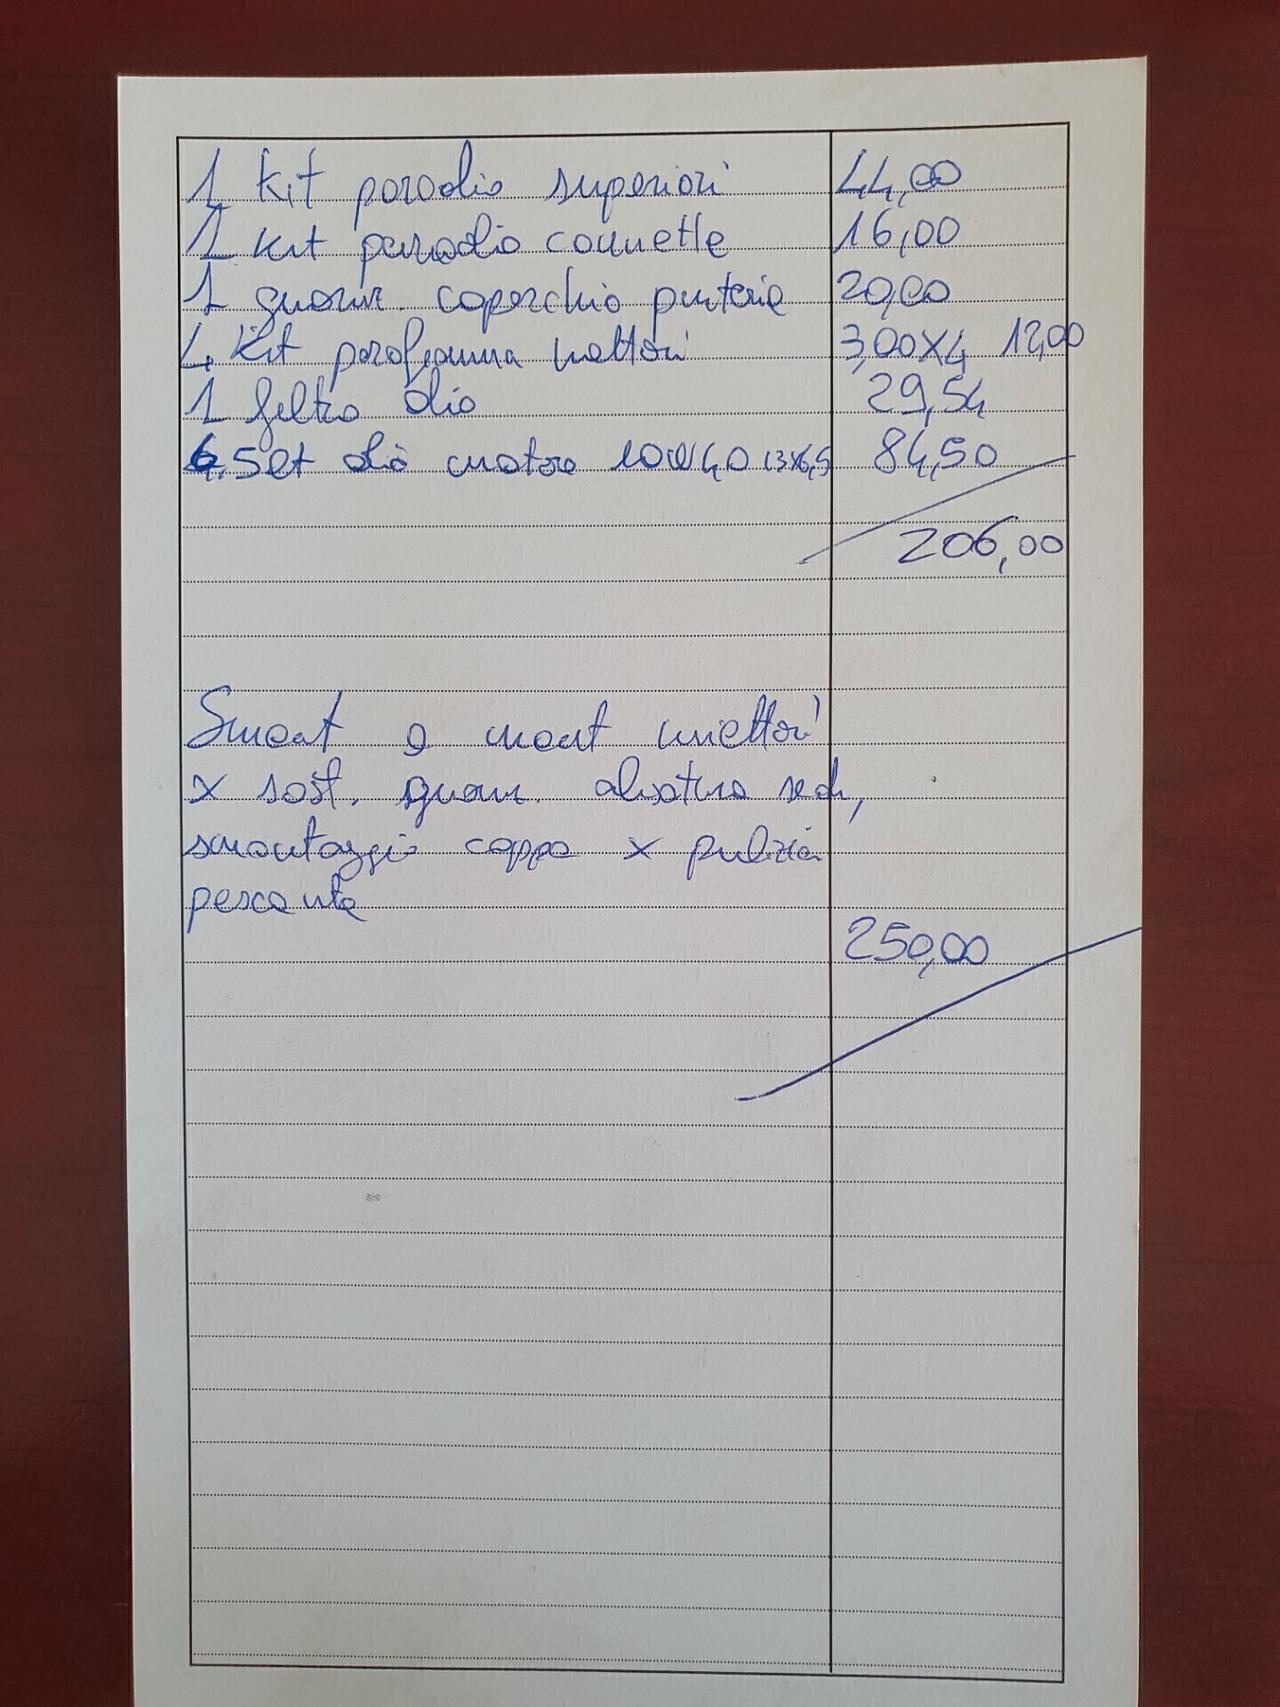 1 Kit paraolio superiori 44,00
1 Kit paraolio cannette 16,00
1 guarniz. coperchio punterie 20,00
4 Kit parafiamma iniettori 3,00x4 12,00
1 filtro olio 29,54
6,5 Lt olio motore 10W40 13x6,5 84,50
206,00
Smont e mont iniettori
x sost. guarn. alzatura sedi,
smontaggio coppa x pulizia
pescante
250,00